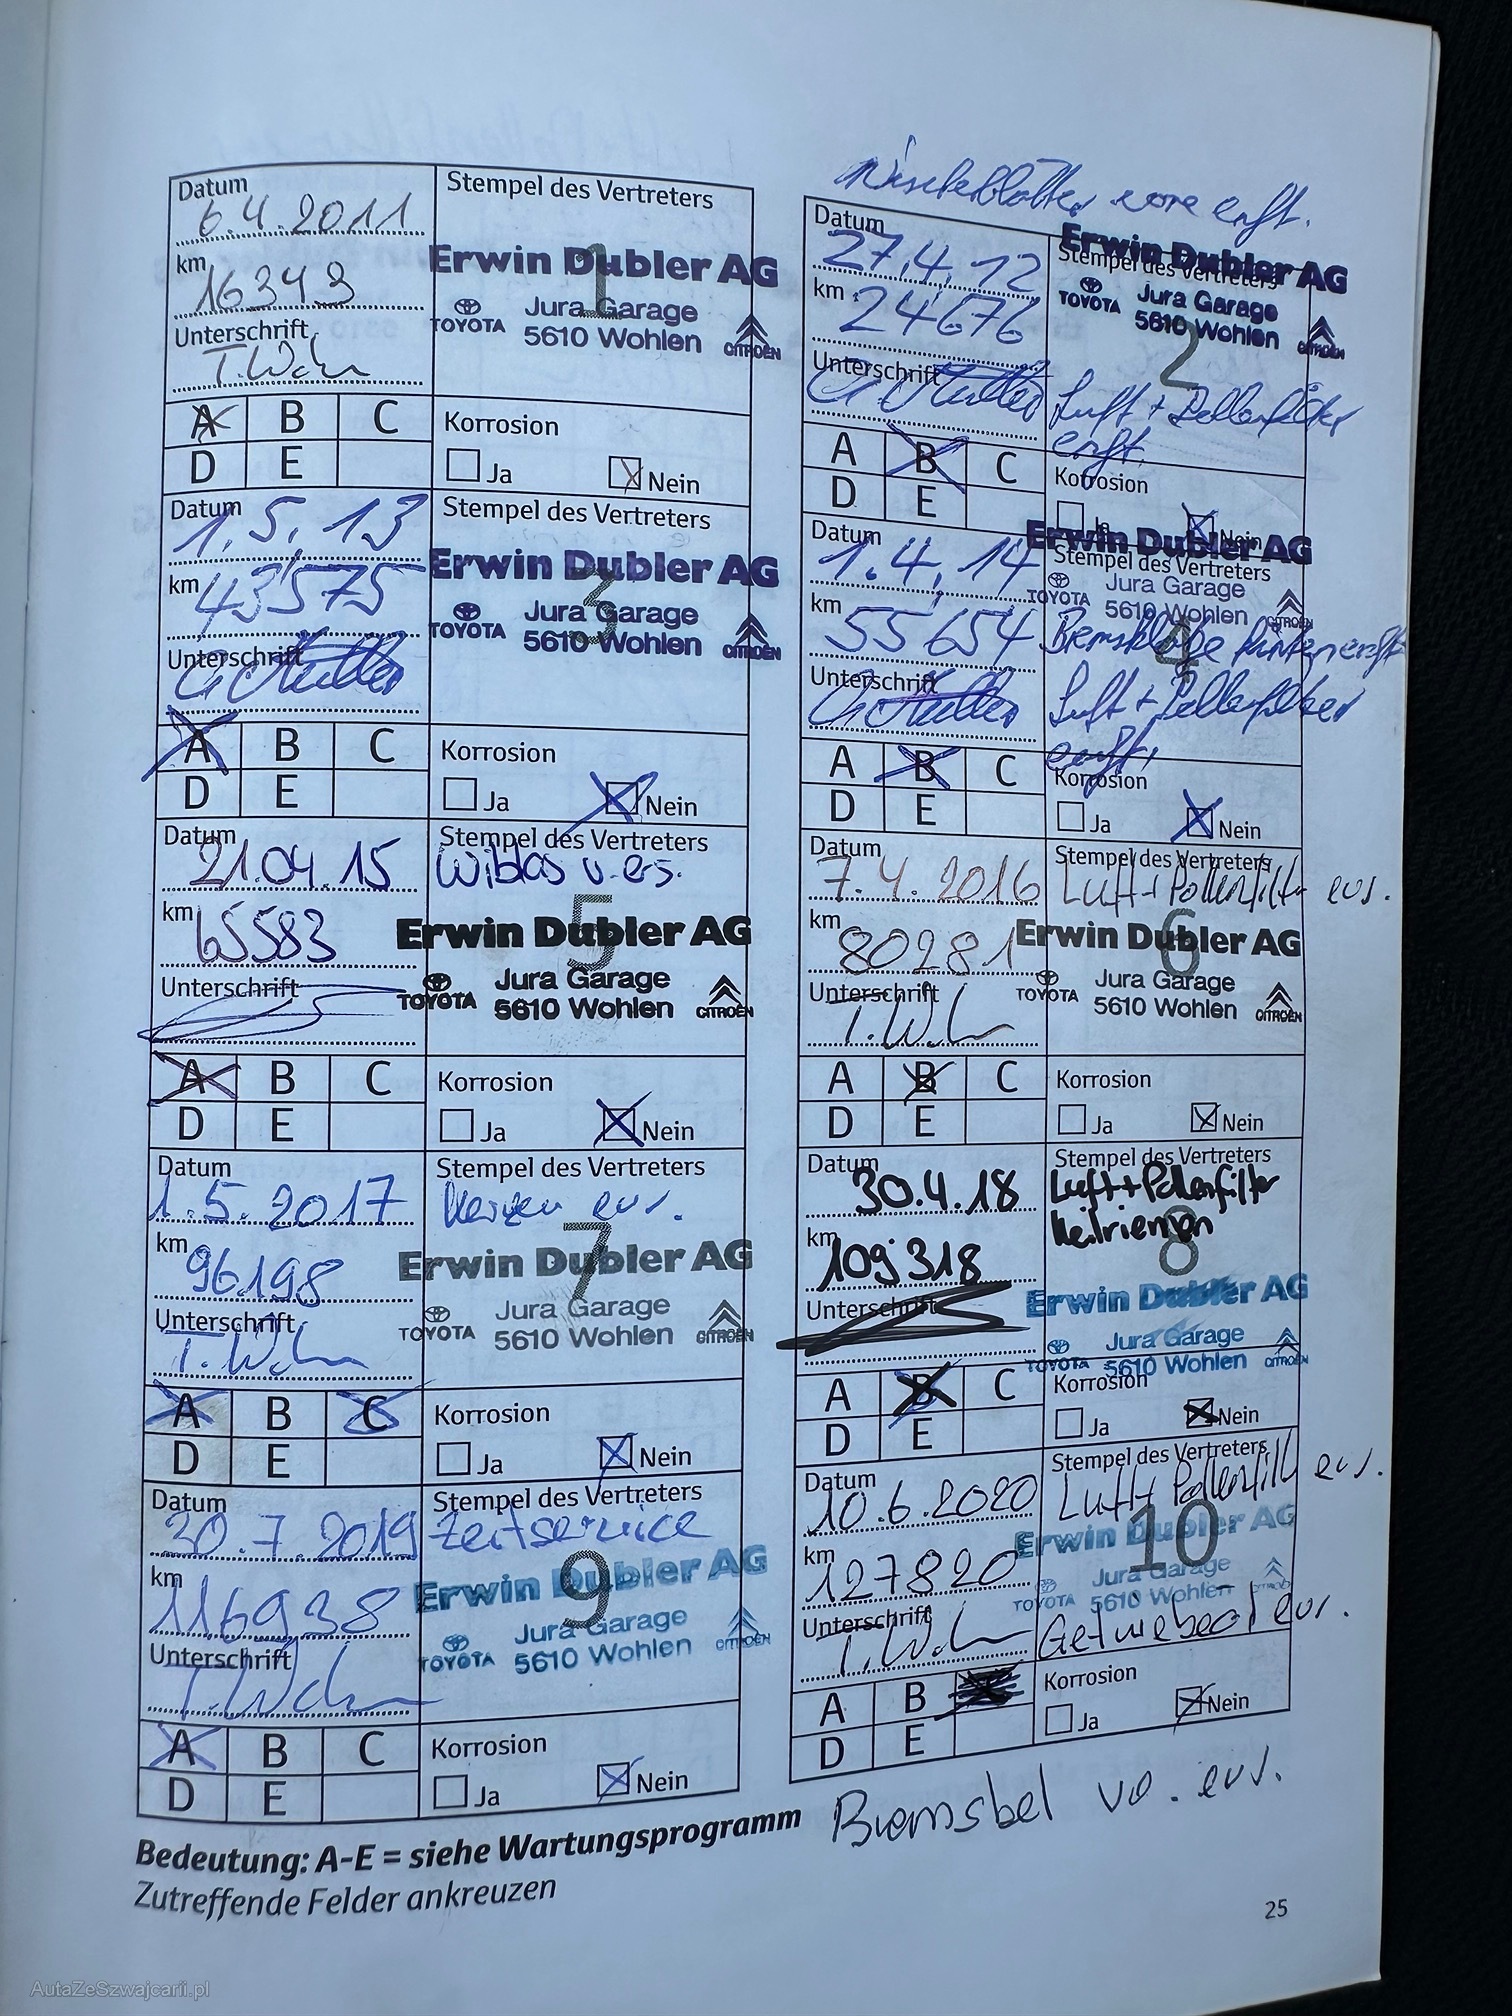 Datum
6.4.2011
Stempel des Vertreters
1
km
16343
Erwin Dubler AG
TOYOTA
Jura Garage
5610 Wohlen
CITROËN
Unterschrift
A B C
D E
Korrosion
Ja Nein
Wischerblätter vore ers.
Datum
27.4.12
Stempel des Vertreters
2
km
24676
Erwin Dubler AG
TOYOTA
Jura Garage
5610 Wohlen
CITROËN
Unterschrift
Luft + Pollenfilter
A B C
D E
Korrosion
Ja Nein
Datum
1.5.13
Stempel des Vertreters
3
km
43'575
Erwin Dubler AG
TOYOTA
Jura Garage
5610 Wohlen
CITROËN
Unterschrift
A B C
D E
Korrosion
Ja Nein
Datum
1.4.14
Stempel des Vertreters
4
km
55'654
Erwin Dubler AG
TOYOTA
Jura Garage
5610 Wohlen
CITROËN
Bremsklötze hinten
Unterschrift
Luft + Pollenfilter
A B C
D E
Korrosion
Ja Nein
Datum
21.04.15
Stempel des Vertreters
Wiblas v. ers.
5
km
65583
Erwin Dubler AG
TOYOTA
Jura Garage
5610 Wohlen
CITROËN
Unterschrift
A B C
D E
Korrosion
Ja Nein
Datum
7.4.2016
Stempel des Vertreters
Luft + Pollenfilter ers.
6
km
80281
Erwin Dubler AG
TOYOTA
Jura Garage
5610 Wohlen
CITROËN
Unterschrift
A B C
D E
Korrosion
Ja Nein
Datum
1.5.2017
Stempel des Vertreters
Kerzen ers.
7
km
96198
Erwin Dubler AG
TOYOTA
Jura Garage
5610 Wohlen
CITROËN
Unterschrift
A B C
D E
Korrosion
Ja Nein
Datum
30.4.18
Stempel des Vertreters
Luft + Pollenfilter
Keilriemen
8
km
109'318
Erwin Dubler AG
TOYOTA
Jura Garage
5610 Wohlen
CITROËN
Unterschrift
A B C
D E
Korrosion
Ja Nein
Datum
30.7.2019
Stempel des Vertreters
Zeitservice
9
km
116938
Erwin Dubler AG
TOYOTA
Jura Garage
5610 Wohlen
CITROËN
Unterschrift
A B C
D E
Korrosion
Ja Nein
Datum
10.6.2020
Stempel des Vertreters
Luft + Pollenfilt ers.
10
km
127820
Erwin Dubler AG
TOYOTA
Jura Garage
5610 Wohlen
Unterschrift
Getriebeoel ers.
A B
D E
Korrosion
Ja Nein
Bremsbel vo. ers.
Bedeutung: A-E = siehe Wartungsprogramm
Zutreffende Felder ankreuzen
25
AutaZeSzwajcarii.pl